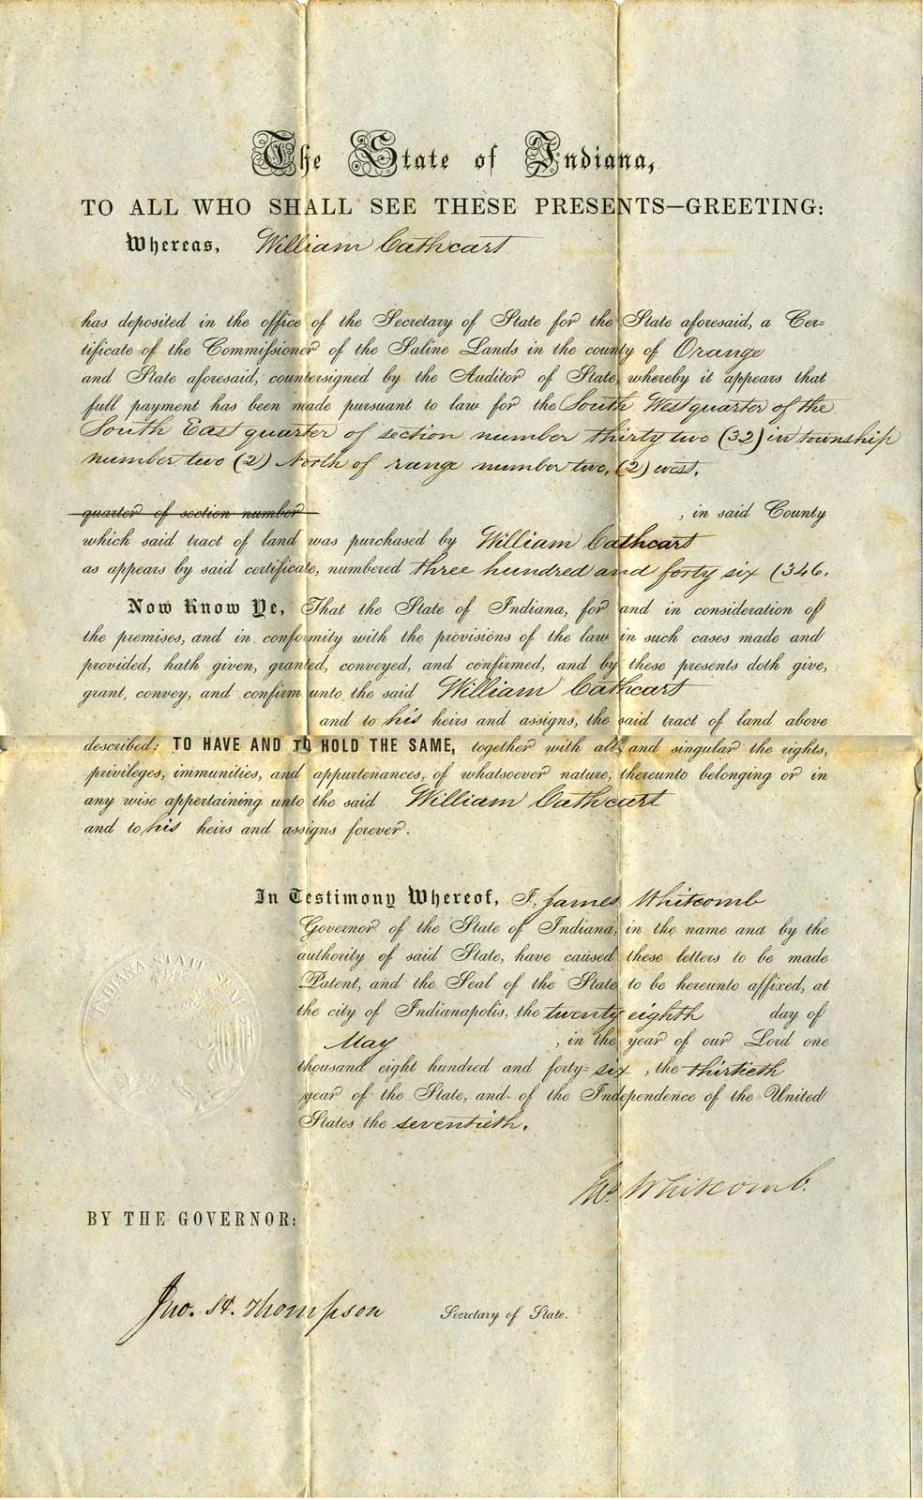 The State of Indiana,
TO ALL WHO SHALL SEE THESE PRESENTS—GREETING:
Whereas, William Cathcart
has deposited in the office of the Secretary of State for the State aforesaid, a Cer=
tificate of the Commissioner of the Saline Lands in the county of Orange
and State aforesaid, countersigned by the Auditor of State, whereby it appears that
full payment has been made pursuant to law for the South West quarter of the
South East quarter of section number thirty two (32) in township
number two (2) North of range number two, (2) west.
quarter of section number , in said County
which said tract of land was purchased by William Cathcart
as appears by said certificate, numbered three hundred and forty six (346.
Now Know Ye, That the State of Indiana, for and in consideration of
the premises, and in conformity with the provisions of the law in such cases made and
provided, hath given, granted, conveyed, and confirmed, and by these presents doth give,
grant, convey, and confirm unto the said William Cathcart
and to his heirs and assigns, the said tract of land above
described: TO HAVE AND TO HOLD THE SAME, together with all and singular the rights,
privileges, immunities, and appurtenances, of whatsoever nature, thereunto belonging or in
any wise appertaining unto the said William Cathcart
and to his heirs and assigns forever.
In Testimony Whereof, I, James Whitcomb
Governor of the State of Indiana, in the name and by the
authority of said State, have caused these letters to be made
Patent, and the Seal of the State to be hereunto affixed, at
the city of Indianapolis, the twenty eighth day of
May , in the year of our Lord one
thousand eight hundred and forty=six , the thirtieth
year of the State, and of the Independence of the United
States the seventieth.
INDIANA STATE SEAL
Jas. Whitcomb.
BY THE GOVERNOR:
Jno. H. Thompson Secretary of State.